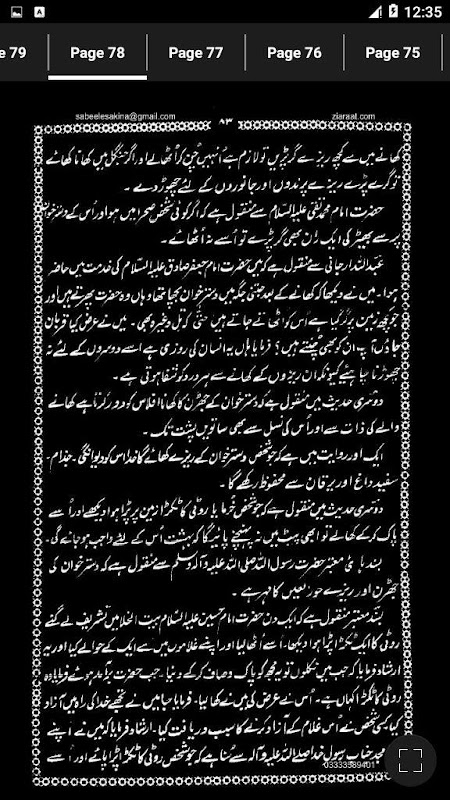 12:35
e 79
Page 78
Page 77
Page 76
Page 75
sabeelesakina@gmail.com
۸۳
ziaraat.com
کھانے میں سے کچھ ریزے گر پڑیں تو لازم ہے اُنہیں چُن کر اُٹھالے اور اگر جنگل میں کھانا کھائے
تو گرے پڑے ریزے پرندوں اور جانوروں کے لئے چھوڑ دے۔
حضرت امام محمد تقی علیہ السلام سے منقول ہے کہ اگر کوئی شخص صحرا میں ہو اور اُس کے دسترخوان
پر سے بھیڑ کی ایک ران بھی گر پڑے تو اُسے نہ اُٹھائے۔
عبداللہ ارجانی سے منقول ہے کہ میں حضرت امام جعفر صادق علیہ السلام کی خدمت میں حاضر
ہوا۔ میں نے دیکھا کہ کھانے کے بعد جتنی جگہ میں دسترخوان بچھا تھا وہاں وہ حضرت پھرتے ہیں اور
جو کچھ زمین پر گرا ہے اُس کو اٹھاتے جاتے ہیں حتیٰ کہ تل وغیرہ بھی۔ میں نے عرض کیا قربان
جاؤں آپ ان کو بھی چنتے ہیں؟ فرمایا ہاں یہ انسان کی روزی ہے اسے دوسروں کے لئے نہ
چھوڑنا چاہئیے کیونکہ ان ریزوں کے کھانے سے ہر درد کو شفا ہوتی ہے۔
دوسری حدیث میں منقول ہے کہ دسترخوان کے جھڑن کا کھانا افلاس کو دور کرتا ہے کھانے
والے کی ذات سے اور اُس کی نسل سے بھی ساتویں پشت تک۔
ایک اور روایت میں ہے کہ جو شخص دسترخوان کے ریزے کھائے گا خدا اس کو دیوانگی۔ جذام۔
سفید داغ اور یرقان سے محفوظ رکھے گا۔
دوسری حدیث میں منقول ہے کہ جو شخص خُرما یا روٹی کا ٹکڑا زمین پر پڑا ہوا دیکھے اور اُسے
پاک کرکے کھالے تو ابھی پیٹ میں نہ پہنچنے پائیگا کہ بہشت اُس کے لئے واجب ہو جائے گی۔
بسند ہائے معتبر حضرت رسول اللہ صلی اللہ علیہ وآلہ وسلم سے منقول ہے کہ دسترخوان کی
جھڑن اور ریزے حور العین کا مہر ہے۔
بسند معتبر منقول ہے کہ ایک دن حضرت امام حسین علیہ السلام بیت الخلا میں تشریف لے گئے
روٹی کا ایک ٹکڑا پڑا ہوا دیکھا۔ اُسے اُٹھا لیا اور اپنے غلاموں میں سے ایک کے حوالے کیا اور یہ
ارشاد فرمایا کہ جب میں نکلوں تو یہ مجھ کو پاک و صاف کرکے دینا۔ جب حضرت برآمد ہوئے فرمایا وہ
روٹی کا ٹکڑا کہاں ہے۔ اُس نے عرض کی میں نے کھا لیا۔ فرمایا جا میں نے تجھے خدا کی راہ میں آزاد
کیا کسی شخص نے اُس غلام کے آزاد کرنے کا سبب دریافت کیا۔ ارشاد فرمایا کہ میں نے اپنے
جد جناب رسول خدا صلے اللہ علیہ وآلہ سے سُنا ہے کہ جو شخص روٹی کا ٹکڑا پڑا پائے اور اُسے
03333589401